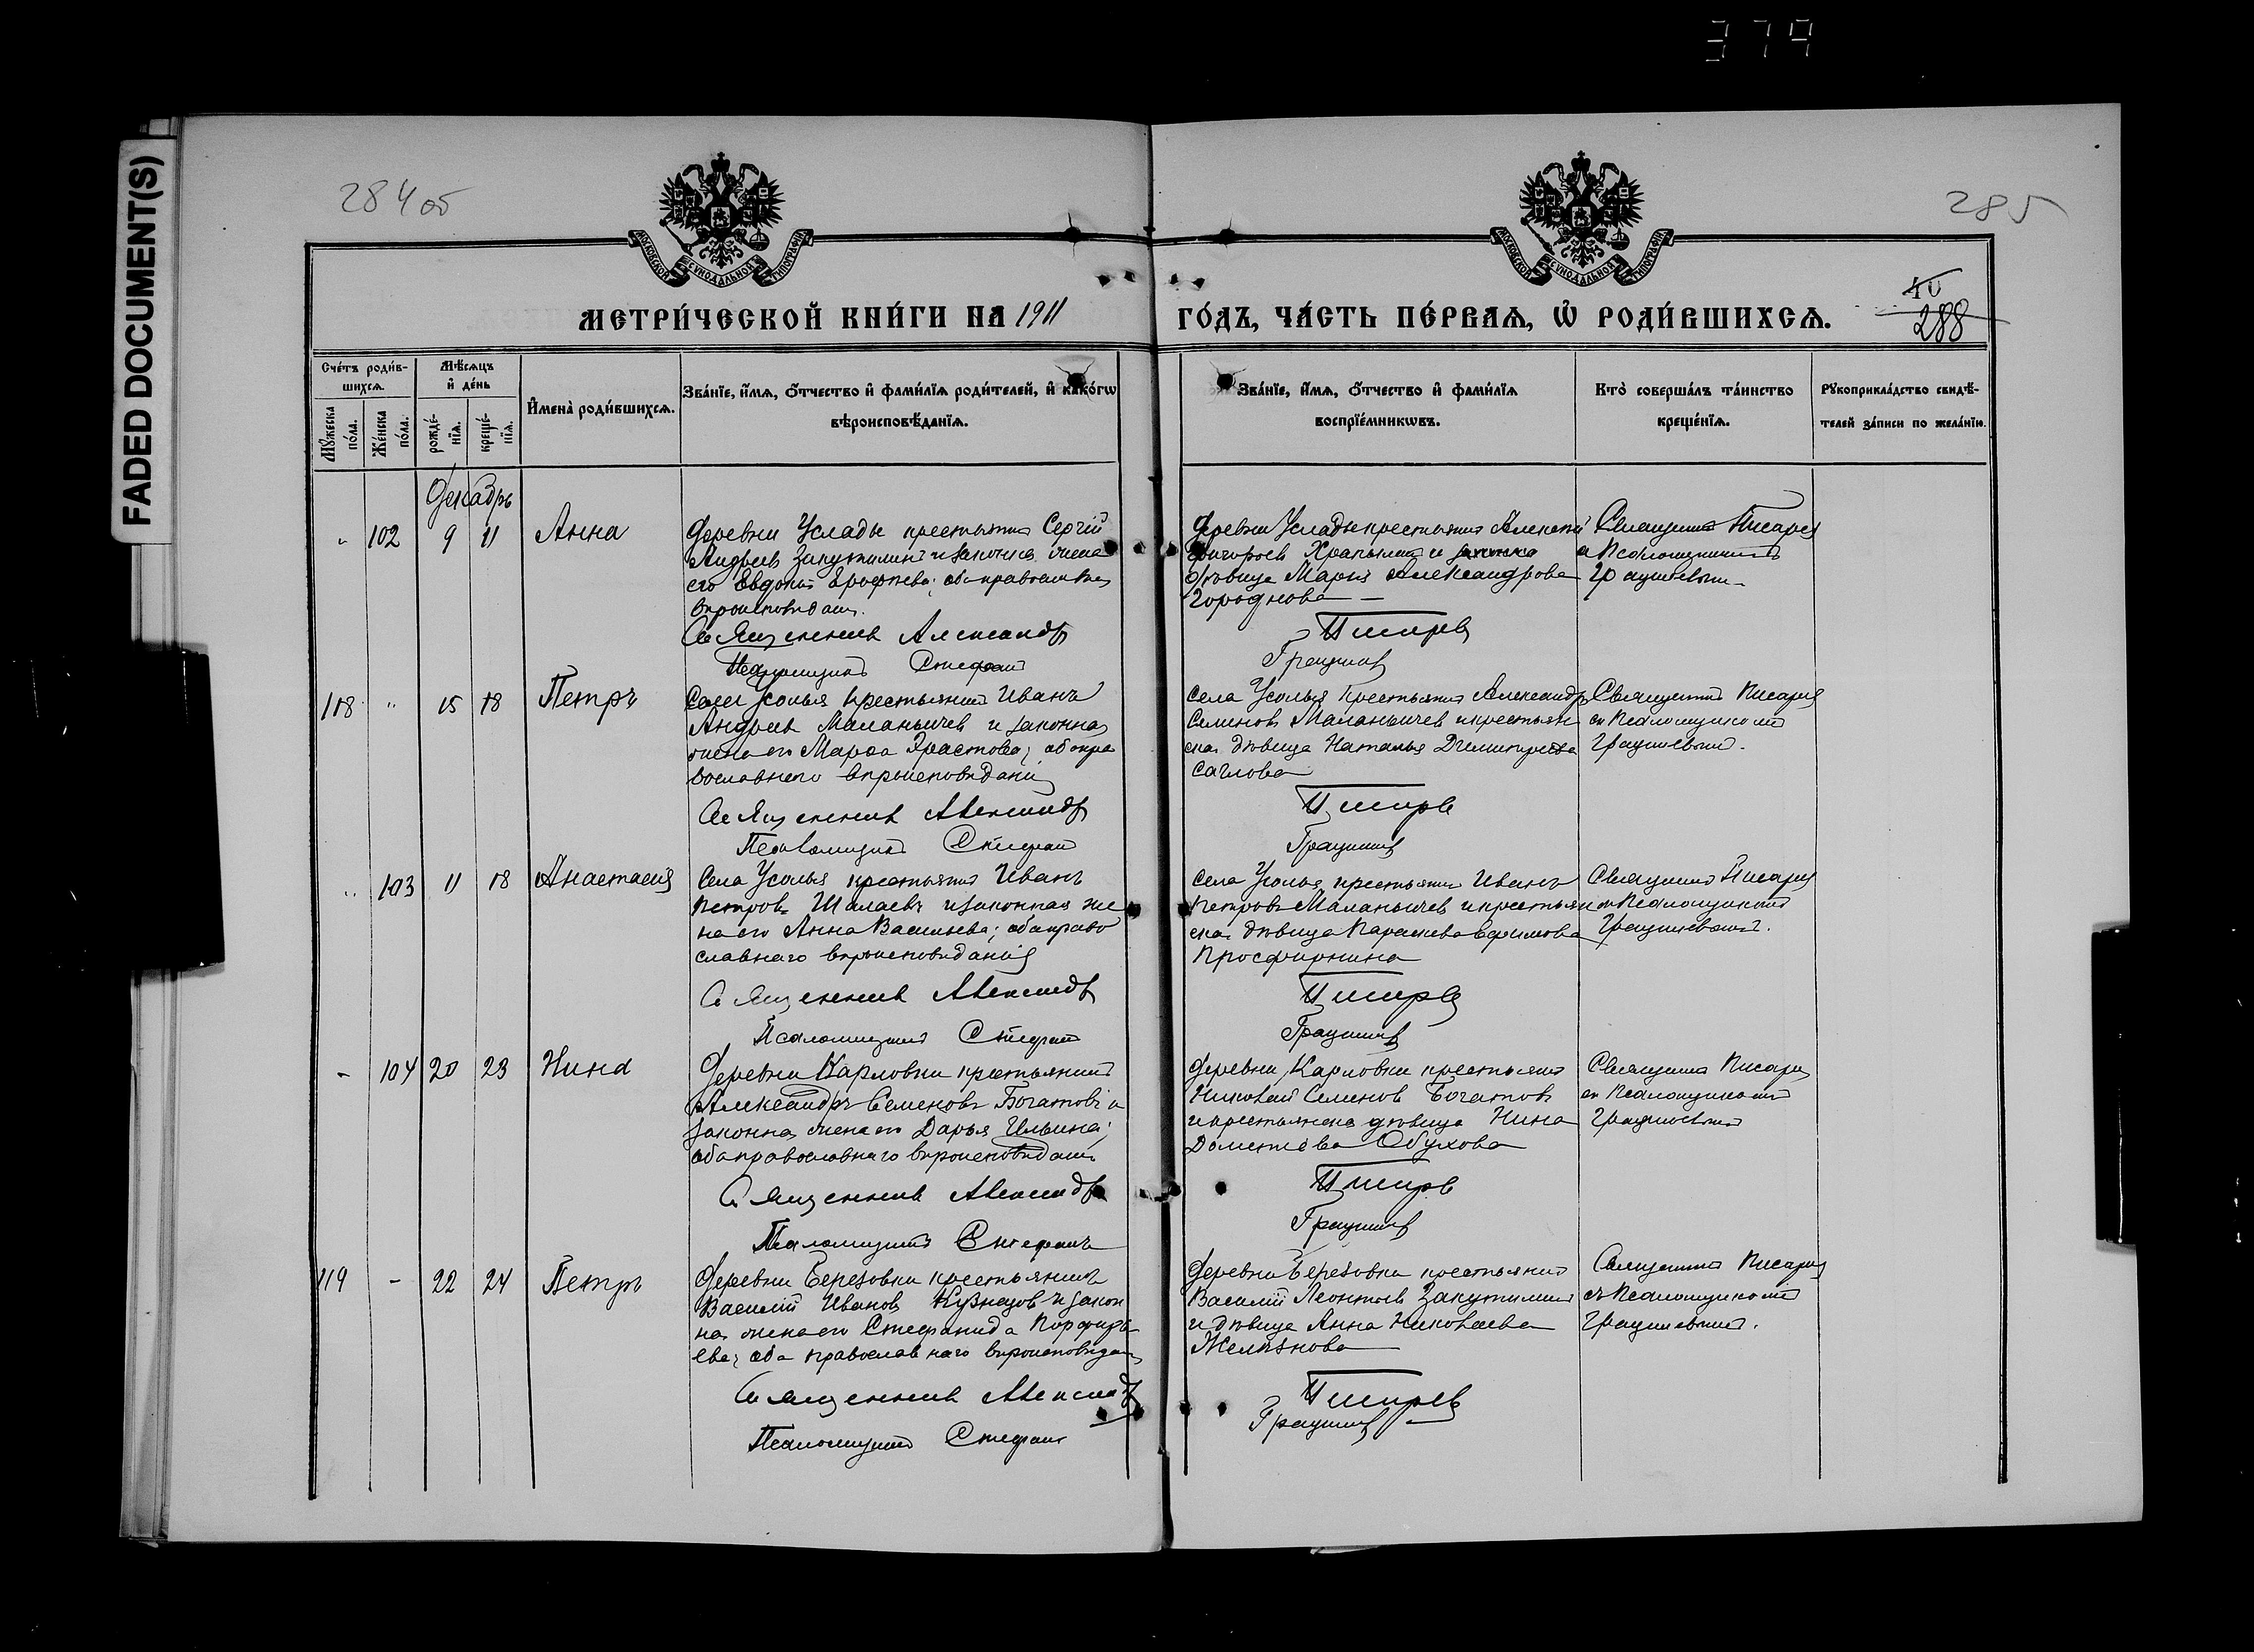 379
FADED DOCUMENT(S)
284об
285
МОСКОВСКОЙ СѴНОДАЛЬНОЙ ТИПОГРАФІИ
МОСКОВСКОЙ СѴНОДАЛЬНОЙ ТИПОГРАФІИ
МЕТРИ́ЧЕСКОЙ КНИ́ГИ НА 1911
ГО́ДЪ, ЧА́СТЬ ПЕ́РВАѦ, Ѡ҆ РОДИ́ВШИХСѦ.
40
288
Сче́тъ роди́в-
шихсѧ.
Мѣ́сѧцъ
и҆ де́нь
Мꙋ́жеска
по́ла.
Же́нска
по́ла.
рожде́-
нїѧ.
креще́-
нїѧ.
И҆мена̀ роди́вшихсѧ.
Зва́нїе, и҆́мѧ, ѻ҆́тчество и҆ фами́лїѧ роди́телей, и҆ како́гѡ
вѣроисповѣ́данїѧ.
Зва́нїе, и҆́мѧ, ѻ҆́тчество и҆ фами́лїѧ
воспрїе́мникѡвъ.
Кто̀ соверша́лъ та́инство
креще́нїѧ.
Рꙋкоприкла́дство свидѣ́-
телей за́писи по жела́нїю.
Декабрь
102 9 11 Анна
Деревни Услады крестьянинъ Сергій
Андреевъ Закутилинъ и законная жена
его Евдокія Ерофеева; оба православнаго
вѣроисповѣданія.
Священникъ Александръ
Псаломщикъ Стефанъ
Деревни Услады крестьянинъ Алексѣй
Григорьевъ и
дѣвица Марія Александрова
Городнова
Писаревъ
Грацилевъ
Священникъ Писаревъ
съ Псаломщикомъ
118 " 15 18 Петръ
Села Усолья крестьянинъ Иванъ
Андреевъ Маланьичев и законная
жена его Марѳа Эрастова; оба пра
вославнаго вѣроисповѣданія
Священникъ Александръ
Псаломщикъ Стефанъ
Села Усолья крестьянинъ Александръ
Семеновъ Маланьичев и крестьян
ская дѣвица Наталья Димитриева
Саглова
Писаревъ
Священникъ Писаревъ
съ Псаломщикомъ
" 103 11 18 Анастасія
Села Усолья крестьянинъ Иванъ
Петровъ Шалаевъ и законная же
на его Анна Васильева; оба право
славнаго вѣроисповѣданія
Священникъ Александръ
Псаломщикъ Стефанъ
Села Усолья крестьянинъ Иванъ
Петровъ Маланьичев и крестьян
ская дѣвица Параскева Ефимова
Просфирнина
Писаревъ
Священникъ Писаревъ
съ Псаломщикомъ
- 104 20 23 Нина
Деревни Карловки крестьянинъ
Александръ Семеновъ Богатовъ и
законная жена его Дарья Ильина;
оба православнаго вѣроисповѣданія
Священникъ Александръ
Псаломщикъ Стефанъ
Деревни Карловки крестьянинъ
Николай Семенов Богатов
и крестьянская дѣвица Нина
Обухова
Писаревъ
Священникъ Писаревъ
съ Псаломщикомъ
119 - 22 24 Петръ
Деревни Березовки крестьянинъ
Василій Иванов Кузнецов и закон
ная жена его Стефанида Порфирь
ева; оба православнаго вѣроисповѣданія
Священникъ Александръ
Псаломщикъ Стефанъ
Деревни Березовки крестьянинъ
Василій Леонтьев Закутилинъ
и дѣвица Анна Николаева
Желѣзнова
Писаревъ
Священникъ Писаревъ
съ Псаломщикомъ